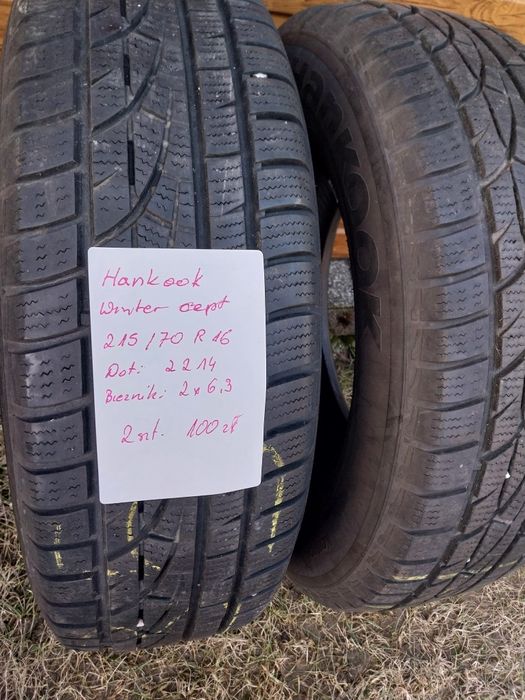 Hankook
Winter cept
215/70 R 16
Dot: 2214
Bieżnik: 2x6,3
2szt. 100zł
Hankook